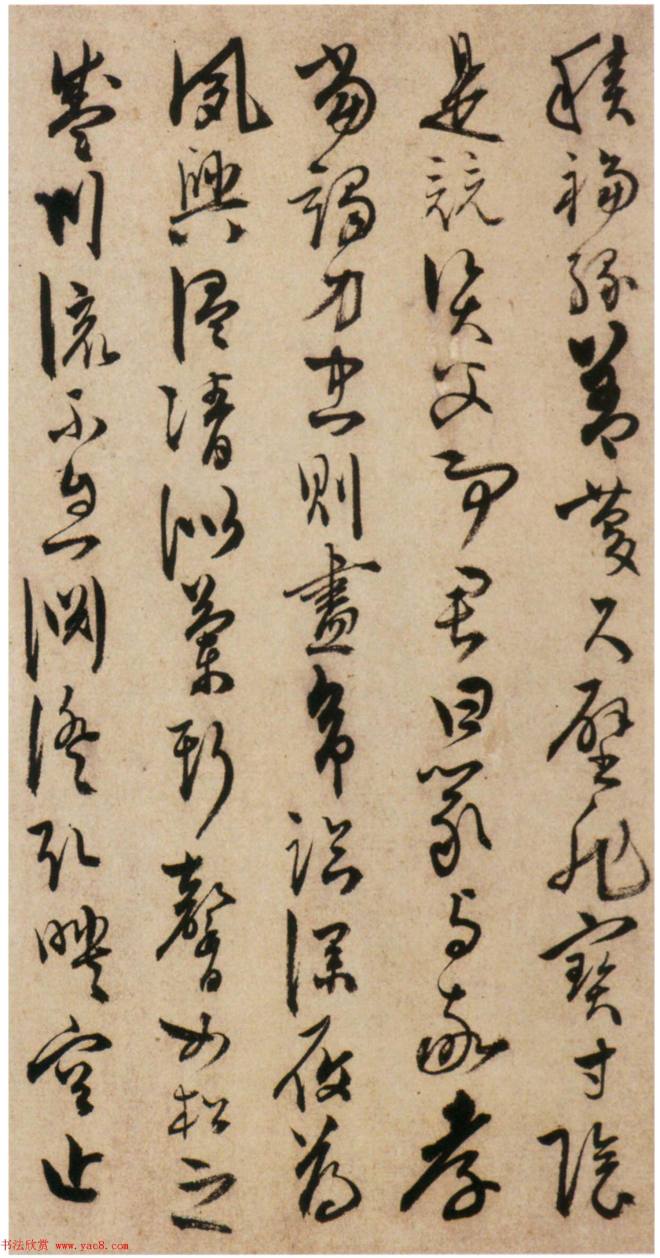 積福緣善慶尺璧非寶寸陰
是競資父事君曰嚴與敬孝
當竭力忠則盡命臨深履薄
夙興溫凊似蘭斯馨如松之
盛川流不息淵澄取映容止
书法欣赏 www.yac8.com